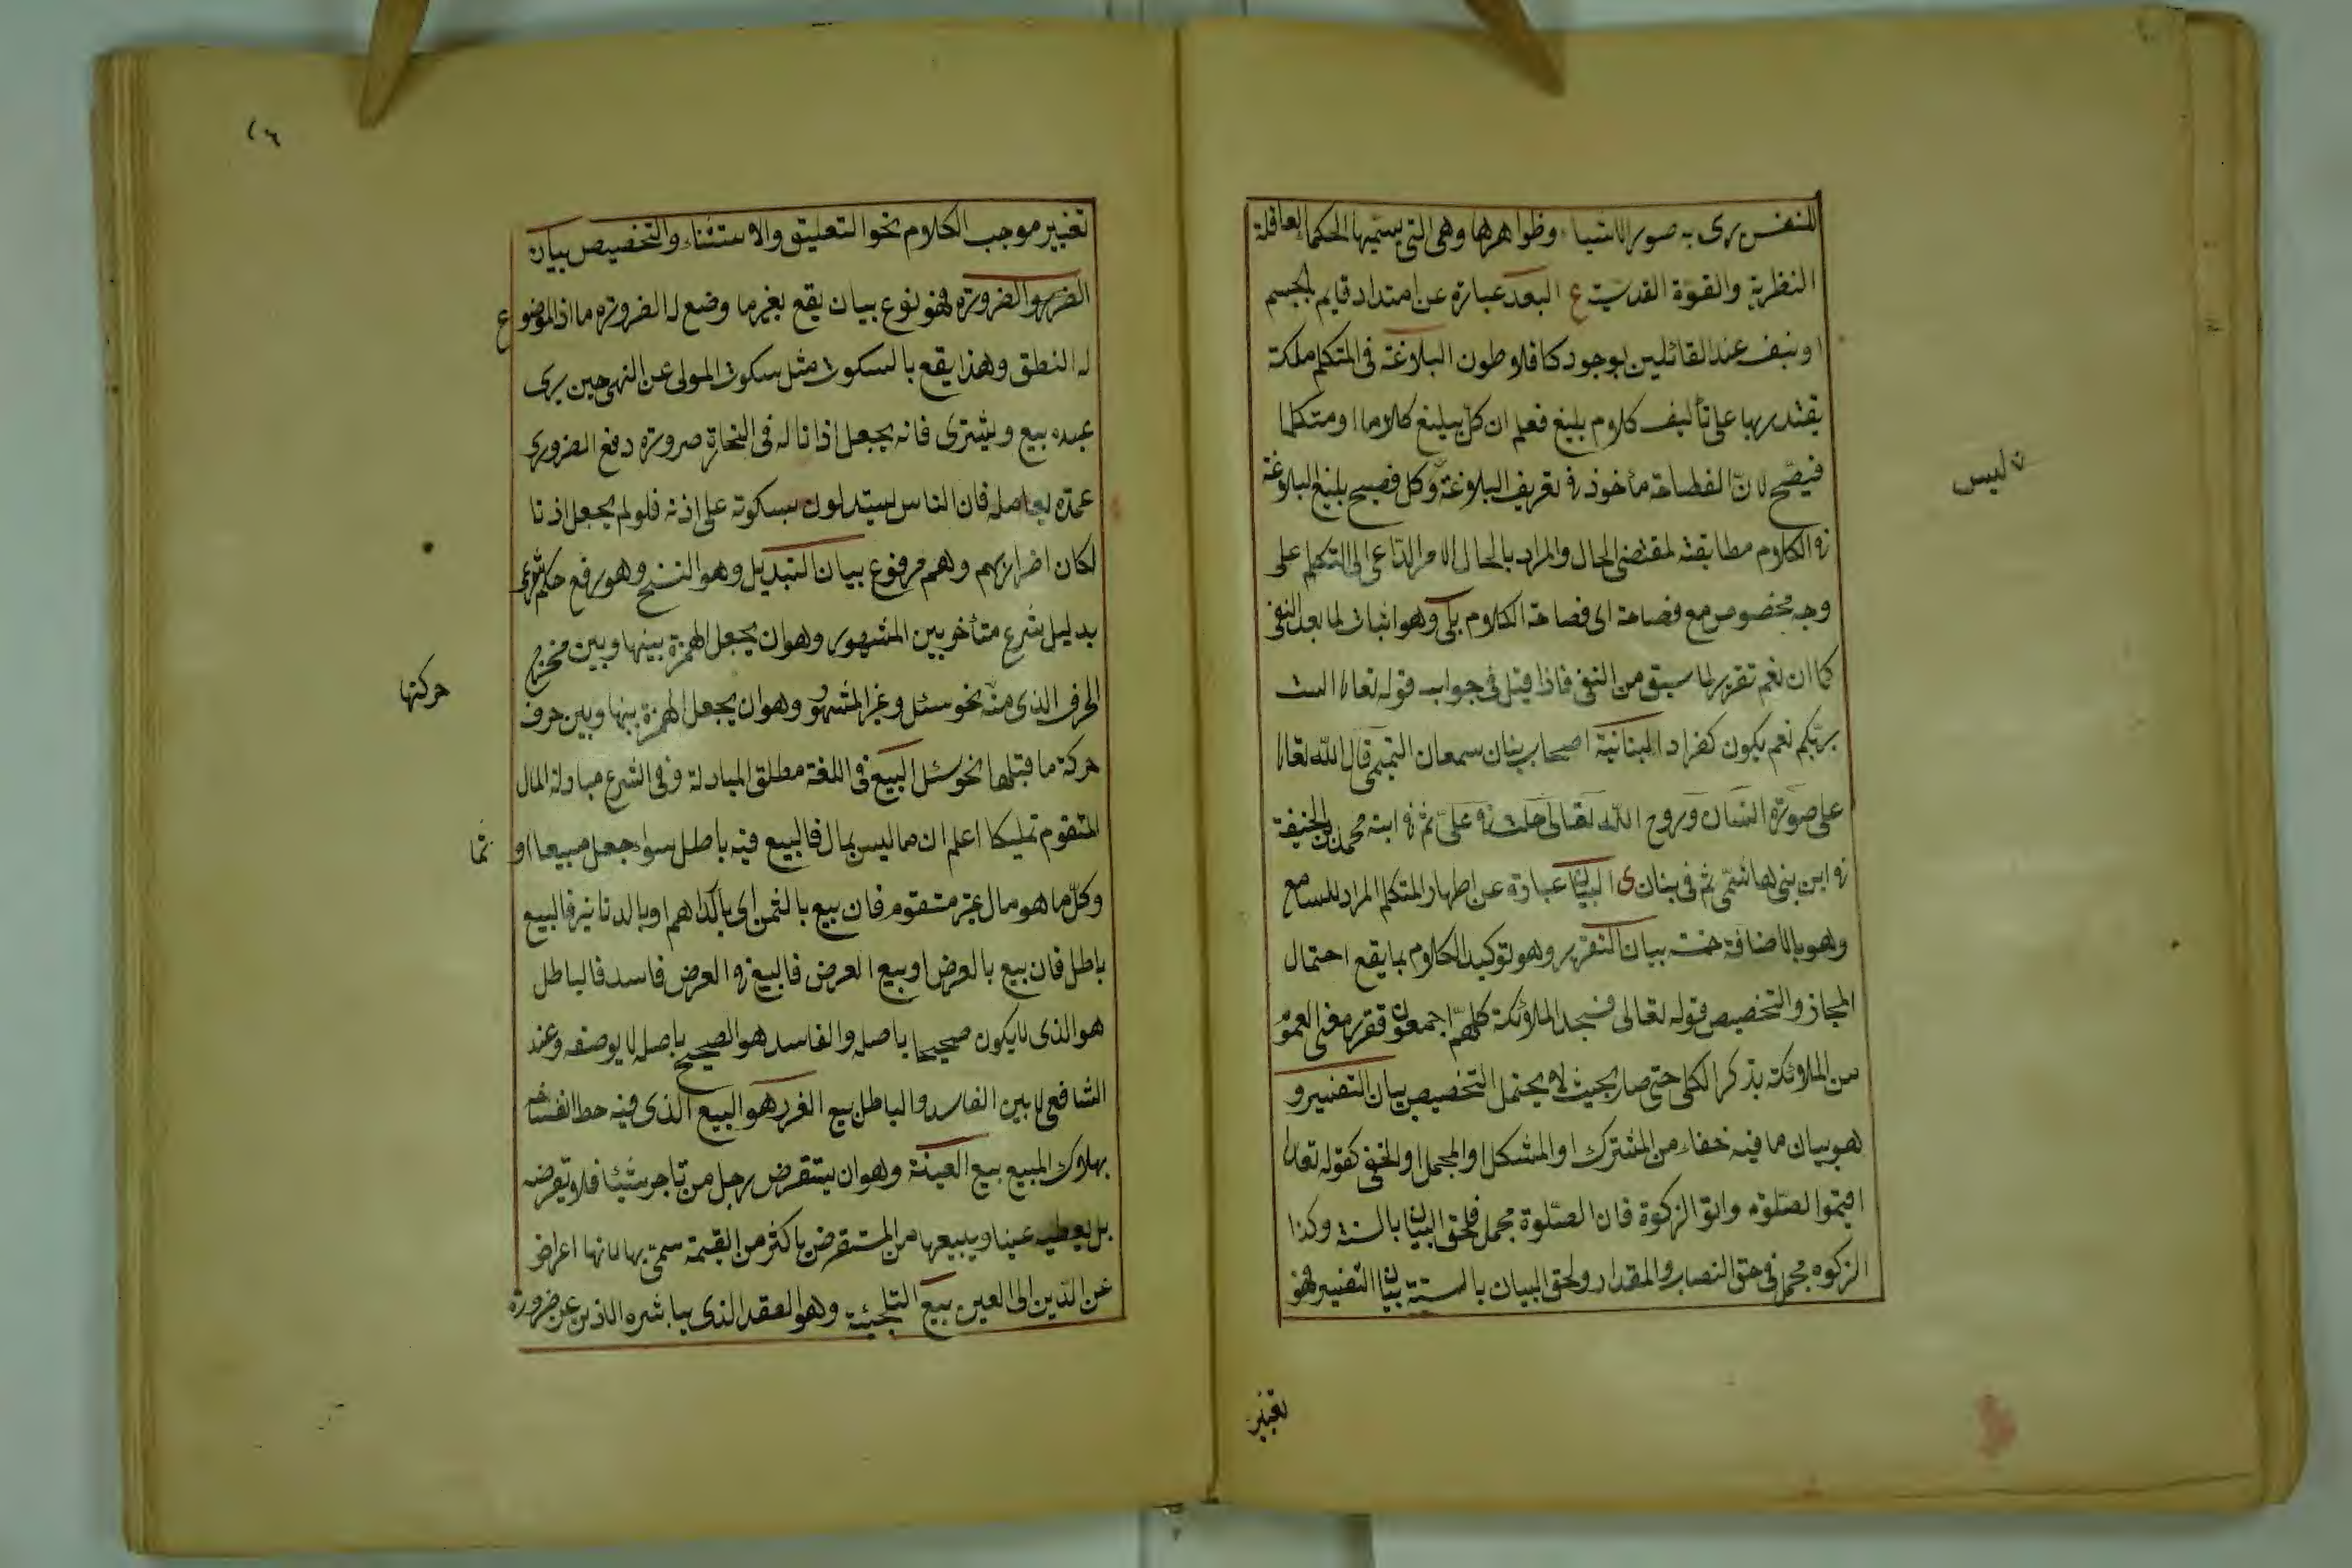 للنفس يرى به صور الاشياء وظواهرها وهى التى يسميها الحكما العاقلة
النظرية والقوة القدسية ع البعد عبارة عن امتداد قايم لجسم
او بنفسه عند القائلين بوجود كافلاطون البلاغة فى المتكلم ملكة
يقتدر بها على تأليف كلام بليغ فعلم ان كل بليغ كلاما او متكلما
فصيح لان الفصاحة مأخوذ فى تعريف البلاغة وكل فصيح بليغ البلاغة
ليس
فى الكلام مطابقته لمقتضى الحال والمراد بالحال الامر الداعى الى التكلم على
وجه مخصوص مع فصاحة اى فصاحة الكلام بلى وهو اثبات لما بعد النفى
كما ان نعم تقرير لما سبق من النفى فاذا قيل فى جواب قوله تعالى الست
بربكم نعم يكون كفرا د البنانية اصحاب بنان سمعان التميمى قال الله تعالى
على صورة انسان وروح الله تعالى حلت فى على ثم فى ابنه محمد بن الحنيفة
فى ابن بنى هاشم ثم فى بنان ى البيان عبارة عن اظهار المتكلم المراد للسامع
وهو بالاضافة خمسة بيان التقرير وهو توكيد الكلام بما يقع احتمال
المجاز والتخصيص قوله تعالى فسجد الملائكة كلهم اجمعون فقرر معنى العموم
من الملائكة بذكر الكل حتى صار بحيث لا يحتمل التخصيص بيان التفسير و
هو بيان ما فيه خفاء من المشترك او المشكل او المجمل او الخفى كقوله تعالى
اقيموا الصلوة واتوا الزكوة فان الصلوة مجمل فلحق البيان بالسنة وكذا
الزكوه مجمل فى حق النصاب والمقدار ولحق البيان بالسنة بيان التغيير فهو
تغيير
٢٦
تغيير موجب الكلام نحو التعليق والاستثناء والتخصيص بيان
الضرر والضرورة فهو نوع بيان يقع بغير ما وضع له الضرورة ما اذ الموضوع
له النطق وهذا يقع بالسكوت مثل سكوت المولى عن النهى حين يرى
عبده يبيع ويشترى فانه يجعل اذنا له فى التجارة ضرورة دفع الضرورى
عمن يعامله فان الناس يستدلون بسكوته على اذنه فلو لم يجعل اذنا
لكان اضرارا بهم وهم مرفوع بيان التبديل وهو النسخ وهو رفع حكم شرعى
بدليل شرع متأخر بين المشهور وهو ان يجعل الهمزة بينها وبين مخرج
الحرف الذى منه نحو سئل وغير المشهور وهو ان يجعل الهمزة بينها وبين حرف
حركتها
حركة ما قبلها نحو سئل البيع فى اللغة مطلق المبادلة وفى الشرع مبادلة المال
المتقوم تمليكا اعلم ان ما ليس بمال فالبيع فيه باطل سواء جعل مبيعا او ثمنا
وكل ما هو مال غير متقوم فان بيع بالثمن اى بالدراهم او بالدنانير فالبيع
باطل فان بيع بالعرض او بيع العرض فالبيع فى العرض فاسد فالباطل
هو الذى لا يكون صحيحا باصله والفاسد هو الصحيح باصله لا بوصفه وعند
الشافعى لا بين الفاسد والباطل بيع الغرر هو البيع الذى فيه خطر انفساخه
بهلاك المبيع بيع العينة وهو ان يستقرض رجل من تاجر شيئا فلا يقرضه
بل يعطيه عينا ويبيعها من المستقرض باكثر من القيمة سمى بها لانها اعراض
عن الدين الى العين بيع التلجئة وهو العقد الذى يباشره الذين عن ضرورة